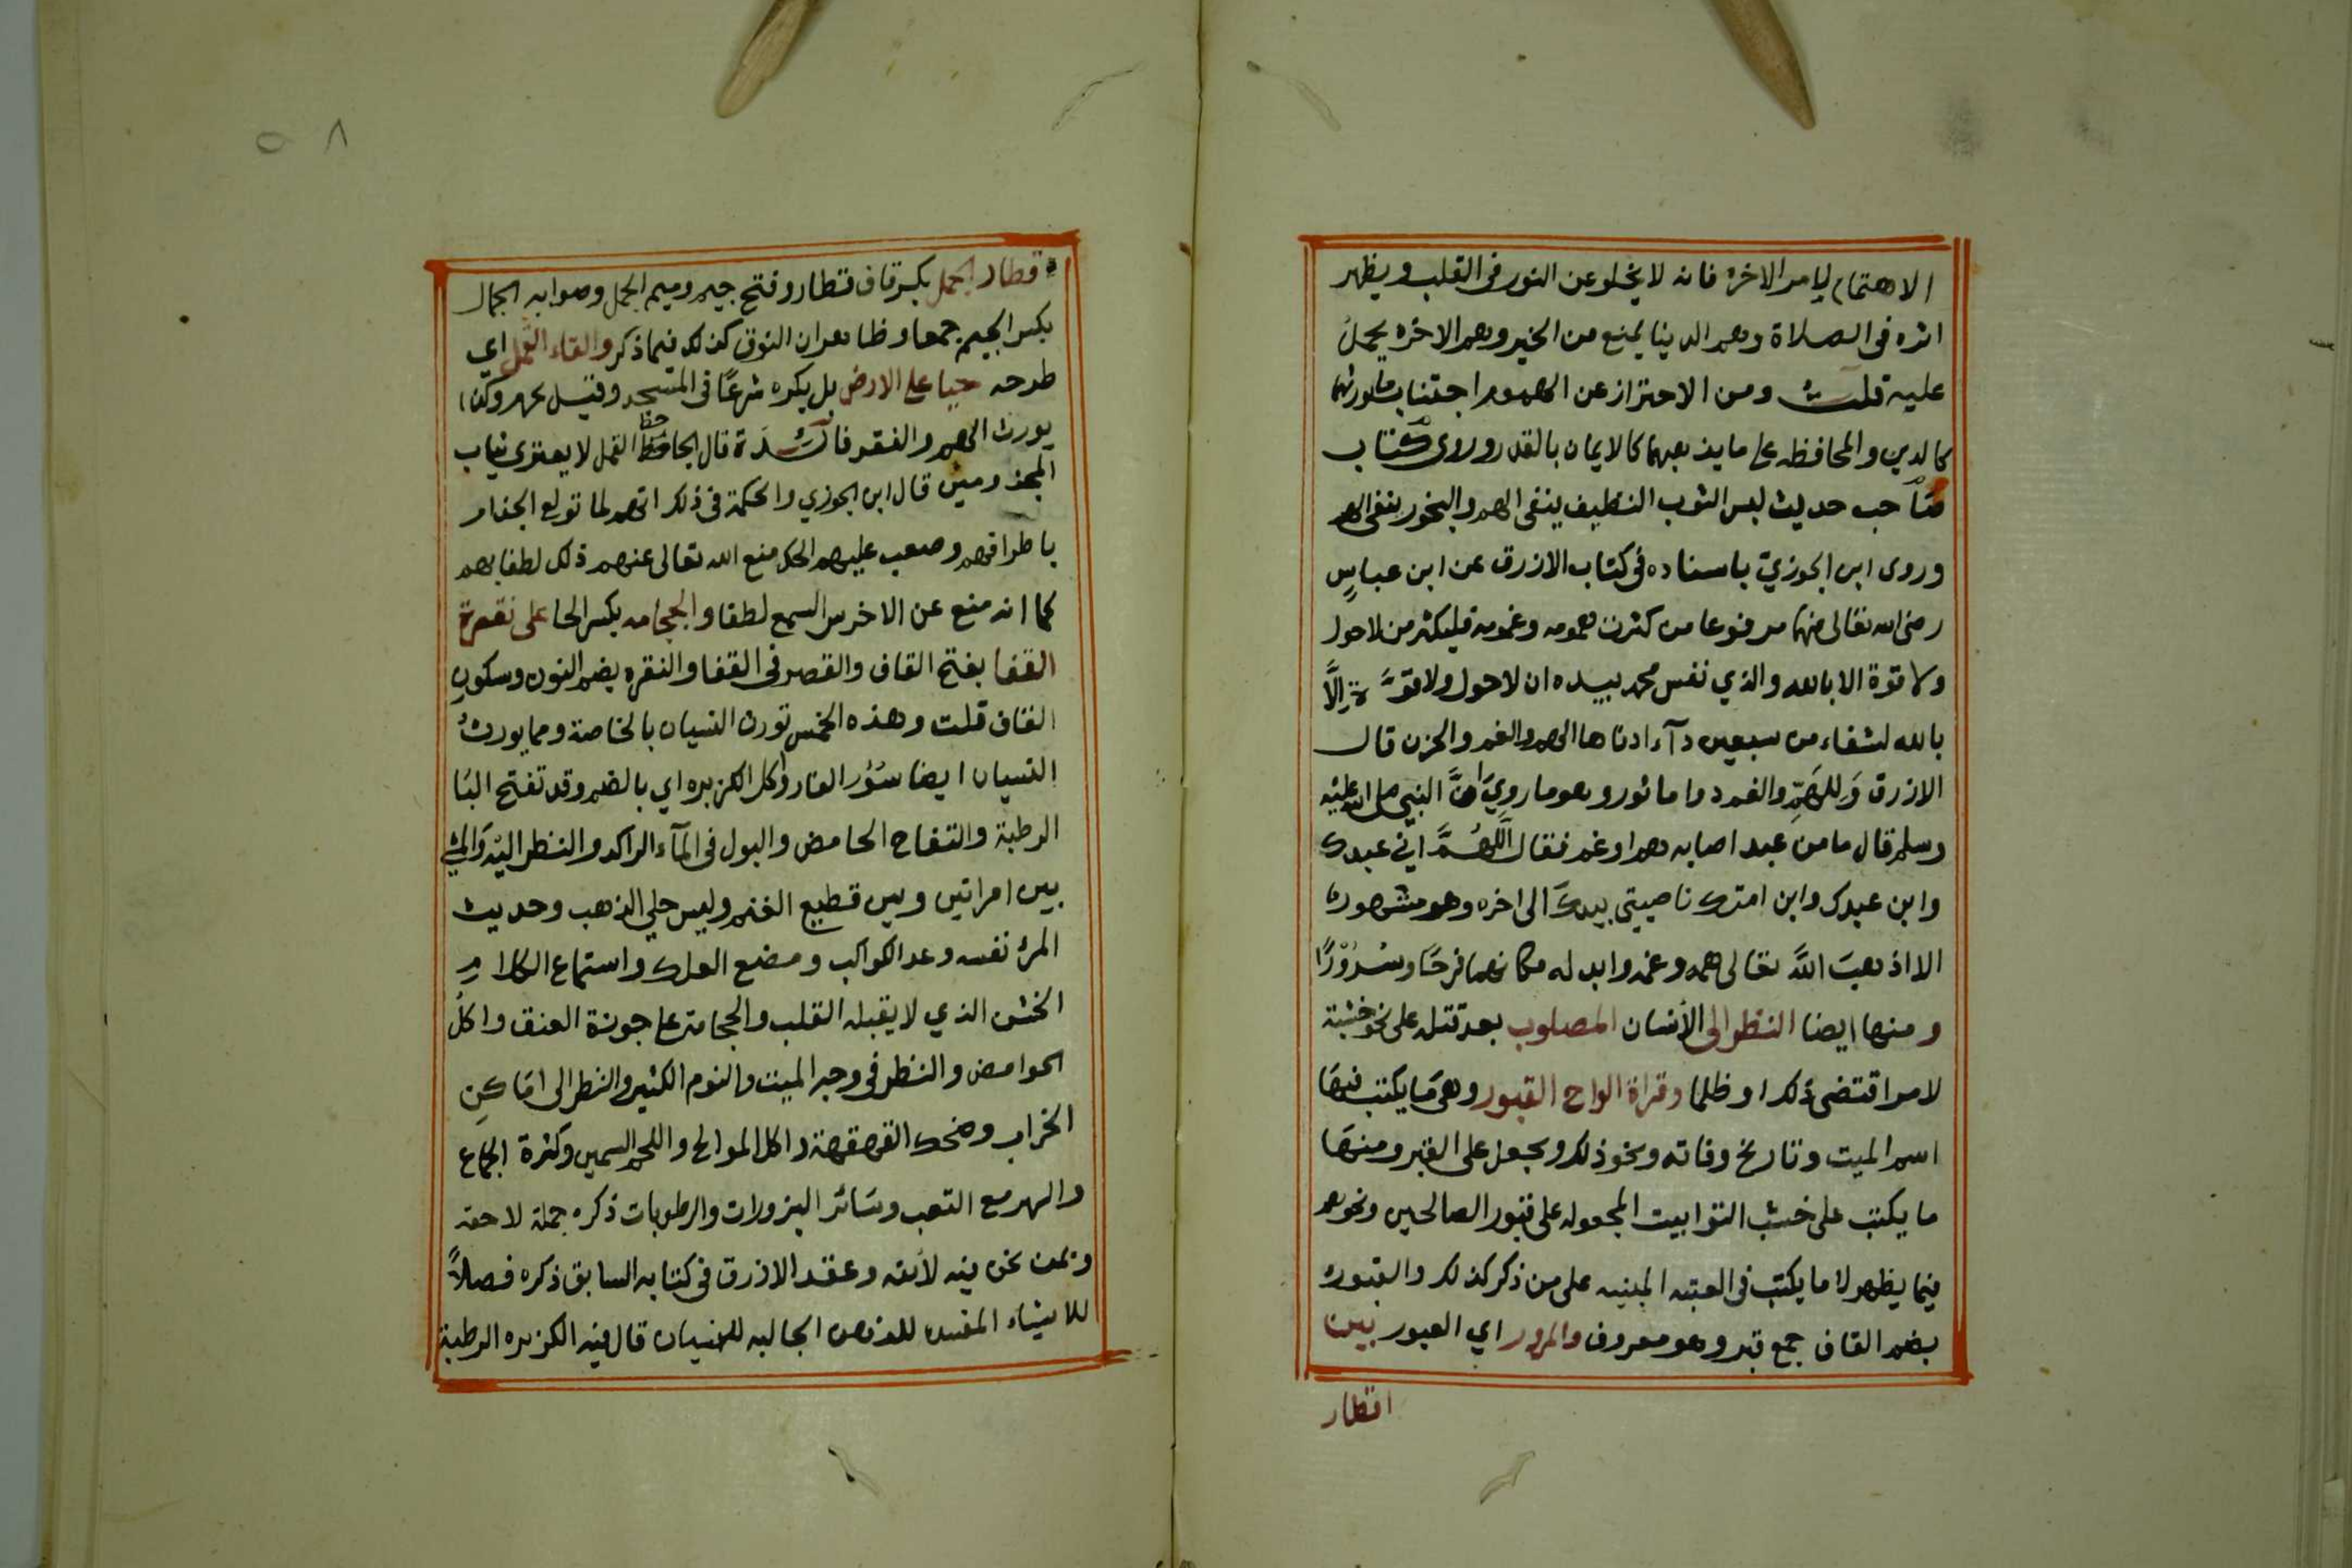 الاهتمام لامر الاخره فانه لا يخلو عن النور في القلب ويظهر
اثره في الصلاة وهم الدنيا يمنع من الخير وهم الاخره يحمل
عليه قلت ومن الاحتراز عن الهموم اجتناب ما يورثها
كالدين والمحافظه على ما يذهبها كالايمان بالقدر وروى كتاب
صاحب حديث لبس الثوب النظيف ينفي الهم والبخور ينفي الهم
وروى ابن الجوزي باسناده في كتاب الازرق عن ابن عباس
رضى الله تعالى عنهما مرفوعا من كثرت همومه وغمومه فليكثر من لاحول
ولا قوة الا بالله والذي نفس محمد بيده ان لاحول ولا قوة الا
بالله لشفاء من سبعين دآء ادناها الهم والغم والحزن قال
الازرق وللهم والغم دوا ماثور وهو ما روي ان النبي صلى الله عليه
وسلم قال ما من عبد اصابه هم او غم فقال اللهم اني عبدك
وابن عبدك وابن امتك ناصيتي بيدك الى اخره وهو مشهور
الا اذهب الله تعالى همه وغمه وابدله مكانهما فرحا وسرورا
ومنها ايضا النظر الى الأنسان المصلوب بعد قتله على نحو خشبة
لامر اقتضى ذلك او ظلما وقراة الواح القبور وهي ما يكتب فيها
اسم الميت وتاريخ وفاته ونحو ذلك ويجعل على القبر ومنها
ما يكتب على خشب التوابيت المجعوله على قبور الصالحين ونحوهم
فيما يظهر لا ما يكتب في العتبه المبنيه على من ذكر كذلك والقبور
بضم القاف جمع قبر وهو معروف والمرور اي العبور بين
اقطار
٥٨
قطار الجمل بكسر قاف قطار وفتح جيم وميم الجمل وصوابه الجمال
بكسر الجيم جمعا وظاهر ان النوق كذلك فيما ذكر والقاء القمل اي
طرحه حيا على الارض بل يكره شرعا في المسجد وقتيل
يورث الهم والفقر فائدة قال الجاحظ القمل لا يعتري ثياب
المجذومين قال ابن الجوزي والحكمة في ذلك انهم لما تولع الجذام
باطرافهم وصعب عليهم الحك منع الله تعالى عنهم ذلك لطفا بهم
كما انه منع عن الاخرس السمع لطفا والحجامه بكسر الحا على نقرة
القفا بفتح القاف والقصر في القفا والنقره بضم النون وسكون
القاف قلت وهذه الخمس تورث النسيان بالخاصة ومما يورث
النسيان ايضا سؤر الفار واكل الكزبره اي بالضم وقد تفتح البا
الرطبة والتفاح الحامض والبول في المآء الراكد والنظر اليه والمشي
بين امراتين وبين قطيع الغنم ولبس حلي الذهب وحديث
المرء نفسه وعد الكواكب ومضغ العلك واستماع الكلام
الخشن الذي لا يقبله القلب والحجامة على جوزة العنق واكل
الحوامض والنظر في وجه الميت والنوم الكثير والنظر الى اماكن
الخراب وضحك القهقهة واكل الموالح واللحم السمين وكثرة الجماع
والهم مع التعب وسائر البزورات والرطوبات ذكره جملة لاحقه
وعقد الازرق في كتابه السابق ذكره فصلا
للاشياء المفسده للذهن الجالبه للنسيان قال فيه الكزبره الرطبة